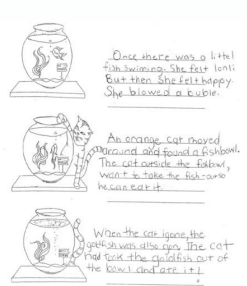 Once there was a littel
fish swiming. She felt lonli
But then She felt happy.
She blowed a buble.
An orange cat moved
around and found a fishbowl.
The cat outside the fishbowl,
want to take the fish
he can eat it.
When the cat i gone, the
goldfish was also gon. The cat
had took the goldfish out of
the bowl and ate it!